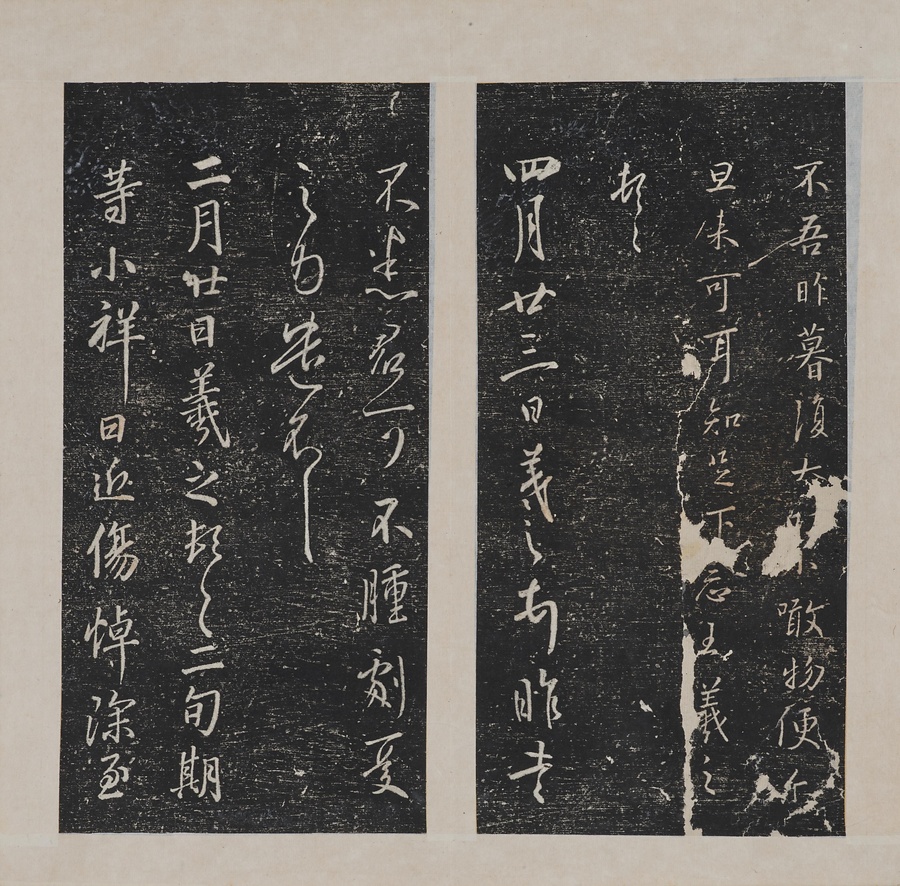 不吾昨暮復大小噉物便尒
旦來可耳知足下念王羲之
頓首
四月廿三日羲之昨書
不悉君可不腫劇憂
之為
二月廿日羲之頓首二旬期
等小祥日近傷悼深至